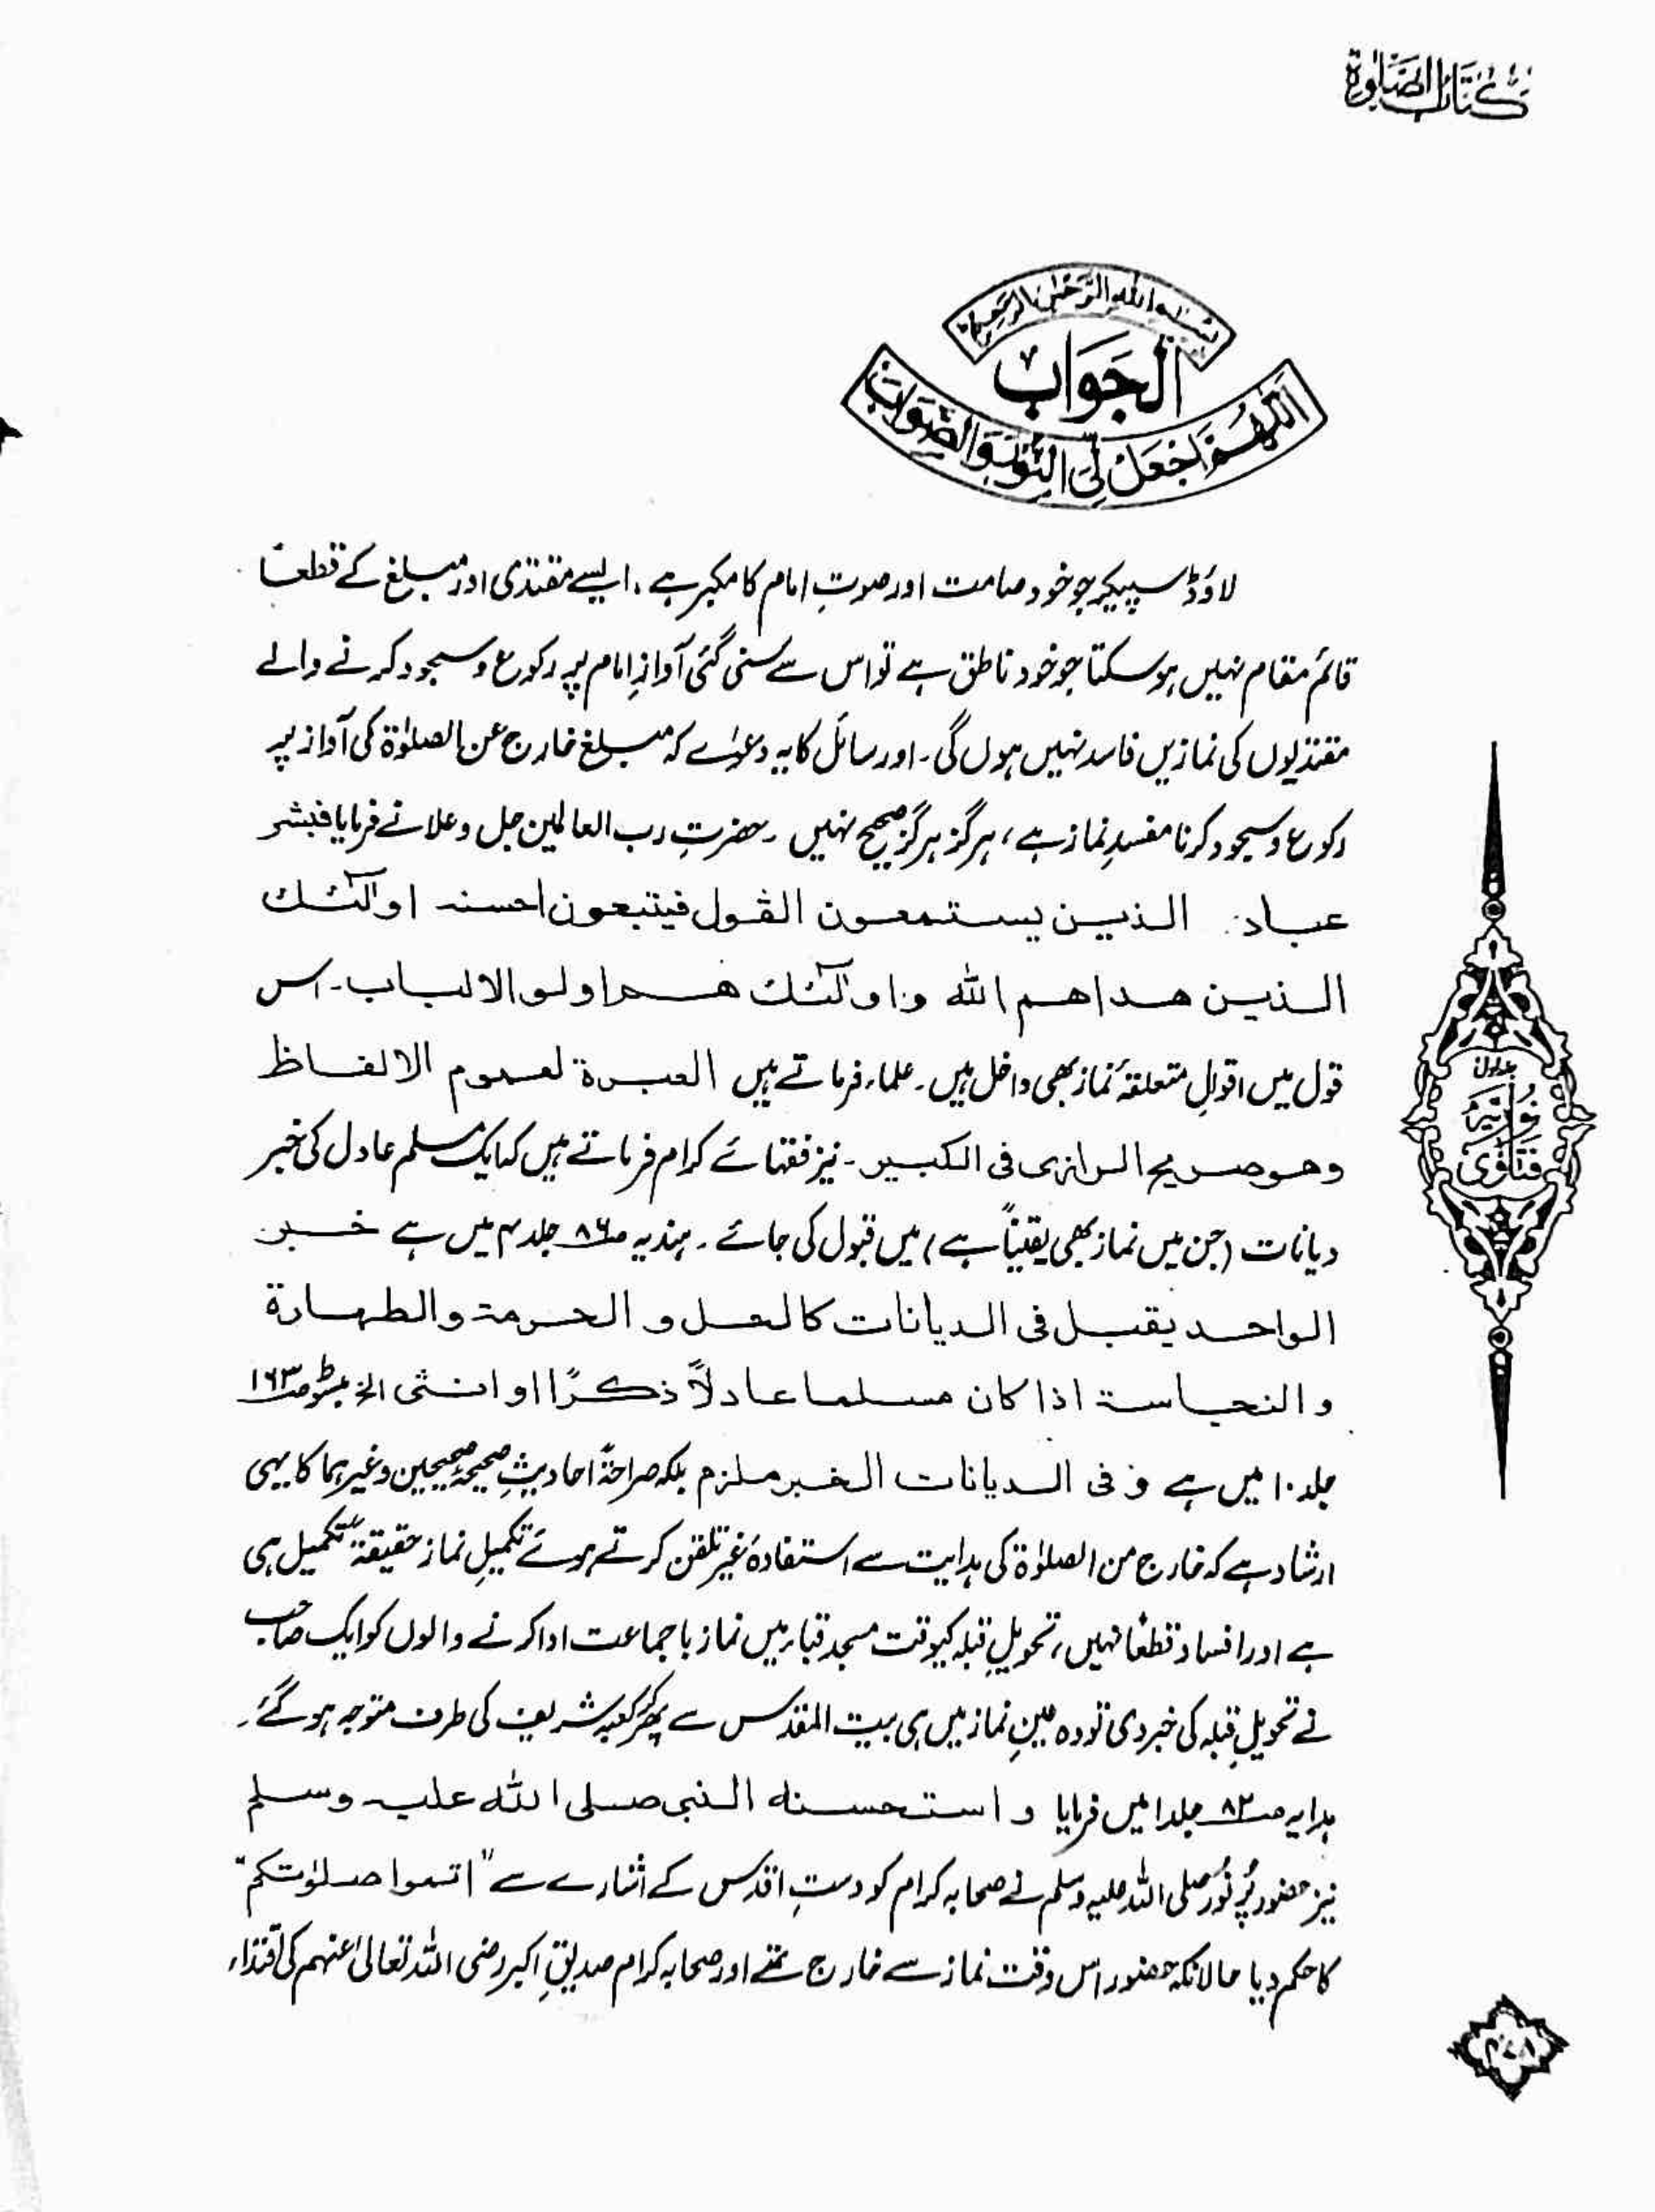 كِتَابُ الصَّلٰوةِ
بِسْمِ اللهِ الرَّحْمٰنِ الرَّحِيْمِ
اَلْجَوَابُ
اَللّٰهُمَّ اجْعَلْ لِّیَ النُّوْرَ وَالصَّوَابَ
لاؤڈ سپیکر جو خود صامت اور صوتِ امام کا مکبر ہے، ایسے مقتدی اور مبلغ کے قطعاً
قائم مقام نہیں ہو سکتا جو خود ناطق ہے تو اس سے سنی گئی آوازِ امام پر رکوع و سجود کرنے والے
مقتدیوں کی نمازیں فاسد نہیں ہوں گی۔ اور سائل کا یہ دعوٰے کہ مبلغ خارج عن الصلوٰۃ کی آواز پر
رکوع و سجود کرنا مفسدِ نماز ہے، ہرگز ہرگز صحیح نہیں ۔ حضرتِ رب العالمین جل وعلا نے فرمایا فبشر
عباد۔ الذین یستمعون القول فیتبعون احسنہ اولٰئک
الذین ھداھم اللہ و اولٰئک ھم اولوا الالباب۔ اس
قول میں اقوالِ متعلقۂ نماز بھی داخل ہیں۔ علماء فرماتے ہیں العبرة لعموم الالفاظ
وھو صریح الرازی فی الکبیر۔ نیز فقہائے کرام فرماتے ہیں کہ ایک مسلم عادل کی خبر
دیانات (جن میں نماز بھی یقیناً ہے) میں قبول کی جائے۔ ہندیہ صـ۸۶ جلد ۴ میں ہے خبر
الواحد یقبل فی الدیانات کالحل و الحرمة والطهارة
و النجاسة اذا کان مسلما عادلاً ذکرًا او انثی الخ مبسوط صـ۱۶۳
جلد ۱۰ میں ہے و فی الدیانات الخبر ملزم بلکہ صراحۃً احادیثِ صحیحہ صحیحین وغیرہما کا یہی
ارشاد ہے کہ خارج من الصلوٰۃ کی ہدایت سے استفادۂ غیر تلقن کرتے ہوئے تکمیلِ نماز حقیقۃً تکمیل ہی
ہے اور افساد قطعًا نہیں، تحویلِ قبلہ کیوقت مسجد قباء میں نماز با جماعت ادا کرنے والوں کو ایک صاحب
نے تحویلِ قبلہ کی خبر دی تو وہ عینِ نماز میں ہی بیت المقدس سے پھر کر کعبہ شریف کی طرف متوجہ ہو گئے۔
ہدایہ صـ۸۲ جلد ا میں فرمایا و استحسنہ النبی صلی اللہ علیہ وسلم
نیز حضور پُر نُور صلی اللہ علیہ وسلم نے صحابہ کرام کو دستِ اقدس کے اشارے سے "اتموا صلوٰتکم"
کا حکم دیا حالانکہ حضور اس وقت نماز سے خارج تھے اور صحابہ کرام صدیقِ اکبر رضی اللہ تعالیٰ عنہم کی اقتداء
جلد اول
نُوریّہ
فتاوٰی